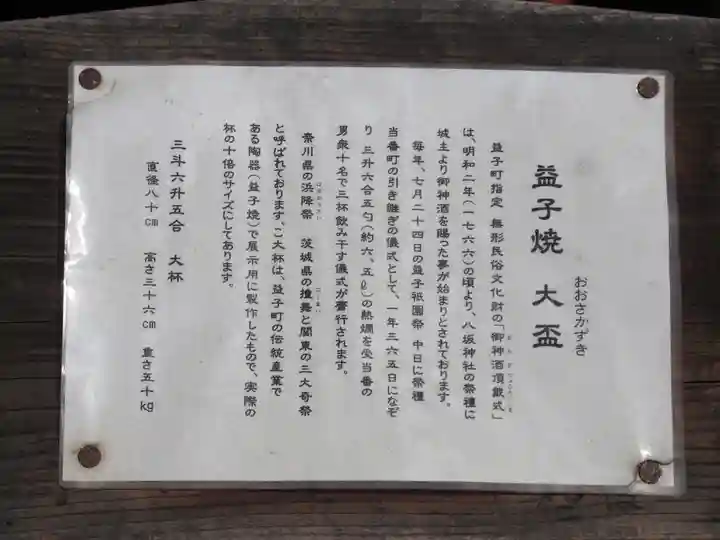 益子焼 大盃
おおさかずき
益子町指定 無形民俗文化財の「御神酒頂戴式」
は、明和二年(一七六六)の頃より、八坂神社の祭禮に
城主より御神酒を賜った事が始まりとされております。
毎年、七月二十四日の益子祇園祭 中日に祭禮
当番町の引き継ぎの儀式として、一年三六五日になぞ
り 三升六合五勺(約六、五ℓ)の熱燗を受当番の
男衆十名で三杯飲み干す儀式が齋行されます。
奈川県の浜降祭 茨城県の撞舞と関東の三大奇祭
と呼ばれております。こ大杯は、益子町の伝統産業で
ある陶器(益子焼)で展示用に製作したもので、実際の
杯の十倍のサイズにしてあります。
三斗六升五合 大杯
直径八十cm 高さ三十六cm 重さ五十kg